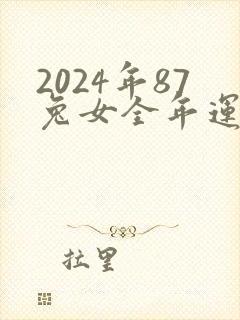 2024年87
兔女全年運
拉里